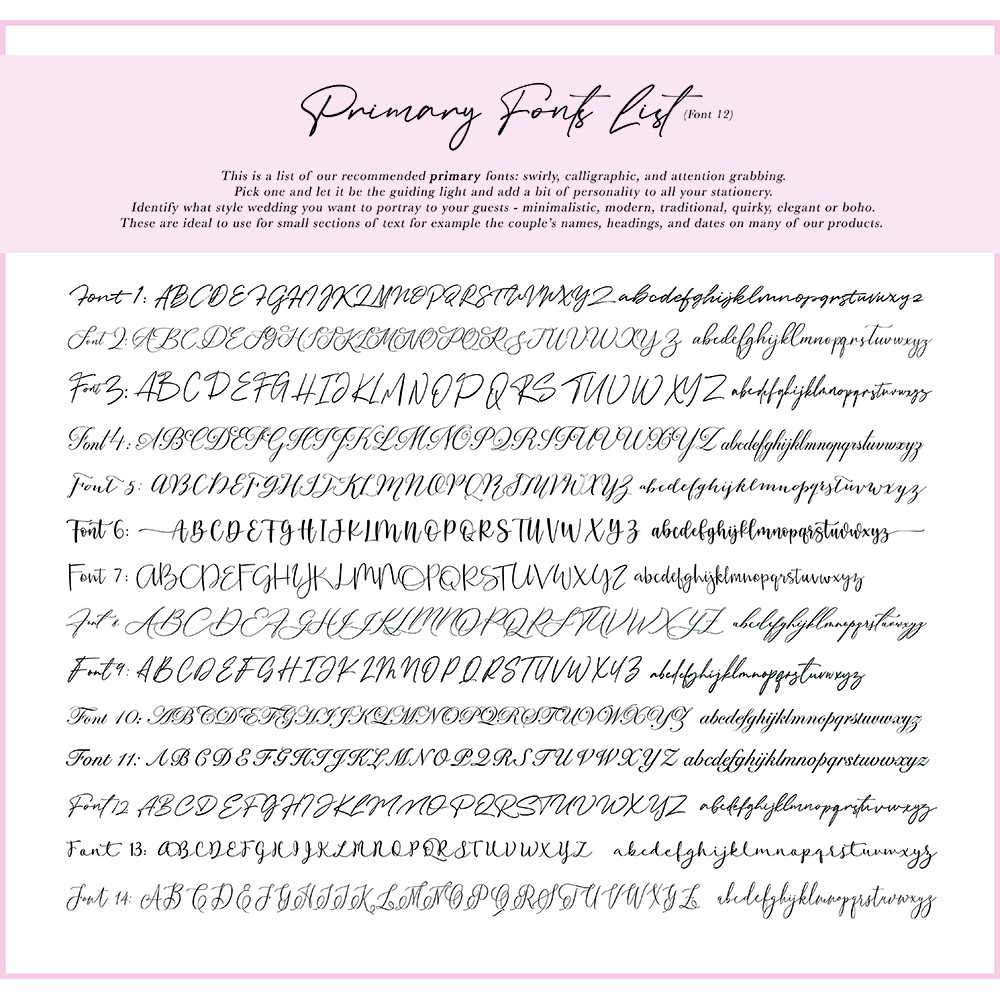 Primary Fonts List (Font 12)
This is a list of our recommended primary fonts: swirly, calligraphic, and attention grabbing.
Pick one and let it be the guiding light and add a bit of personality to all your stationery.
Identify what style wedding you want to portray to your guests - minimalistic, modern, traditional, quirky, elegant or boho.
These are ideal to use for small sections of text for example the couple's names, headings, and dates on many of our products.
Font 1: ABCDEFGHIJKLMNOPQRSTUVWXYZ abcdefghijklmnopqrstuvwxyz
Font 2: ABCDEFGHIJKLMNOPQRSTUVWXYZ abcdefghijklmnopqrstuvwxyz
Font 3: ABCDEFGHIJKLMNOPQRS TUVWXYZ abcdefghijklmnopqrstuvwxyz
Font 4: ABCDEFGHIJKLMNOPQRSTUVWXYZ abcdefghijklmnopqrstuvwxyz
Font 5: ABCDEFGHIJKLMNOPQRSTUVWXYZ abcdefghijklmnopqrstuvwxyz
Font 6: ABCDEFGHIJKLMNOPQRSTUVWXYZ abcdefghijklmnopqrstuvwxyz
Font 7: ABCDEFGHIJKLMNOPQRSTUVWXYZ abcdefghijklmnopqrstuvwxyz
Font 8: ABCDEFGHIJKLMNOPQRSTUVWXYZ abcdefghijklmnopqrstuvwxyz
Font 9: ABCDEFGHIJKLMNOPQRSTUVWXYZ abcdefghijklmnopqrstuvwxyz
Font 10: ABCDEFGHIJKLMNOPQRSTUVWXYZ abcdefghijklmnopqrstuvwxyz
Font 11: ABCDEFGHIJKLMNOPQRSTUVWXYZ abcdefghijklmnopqrstuvwxyz
Font 12 ABCDEFGHIJKLMNOPQRSTUVWXYZ abcdefghijklmnopqrstuvwxyz
Font 13: ABCDEFGHIJKLMNOPQRSTUVWXYZ abcdefghijklmnopqrstuvwxyz
Font 14: ABCDEFGHIJKLMNOPQRSTUVWXYZ abcdefghijklmnopqrstuvwxyz